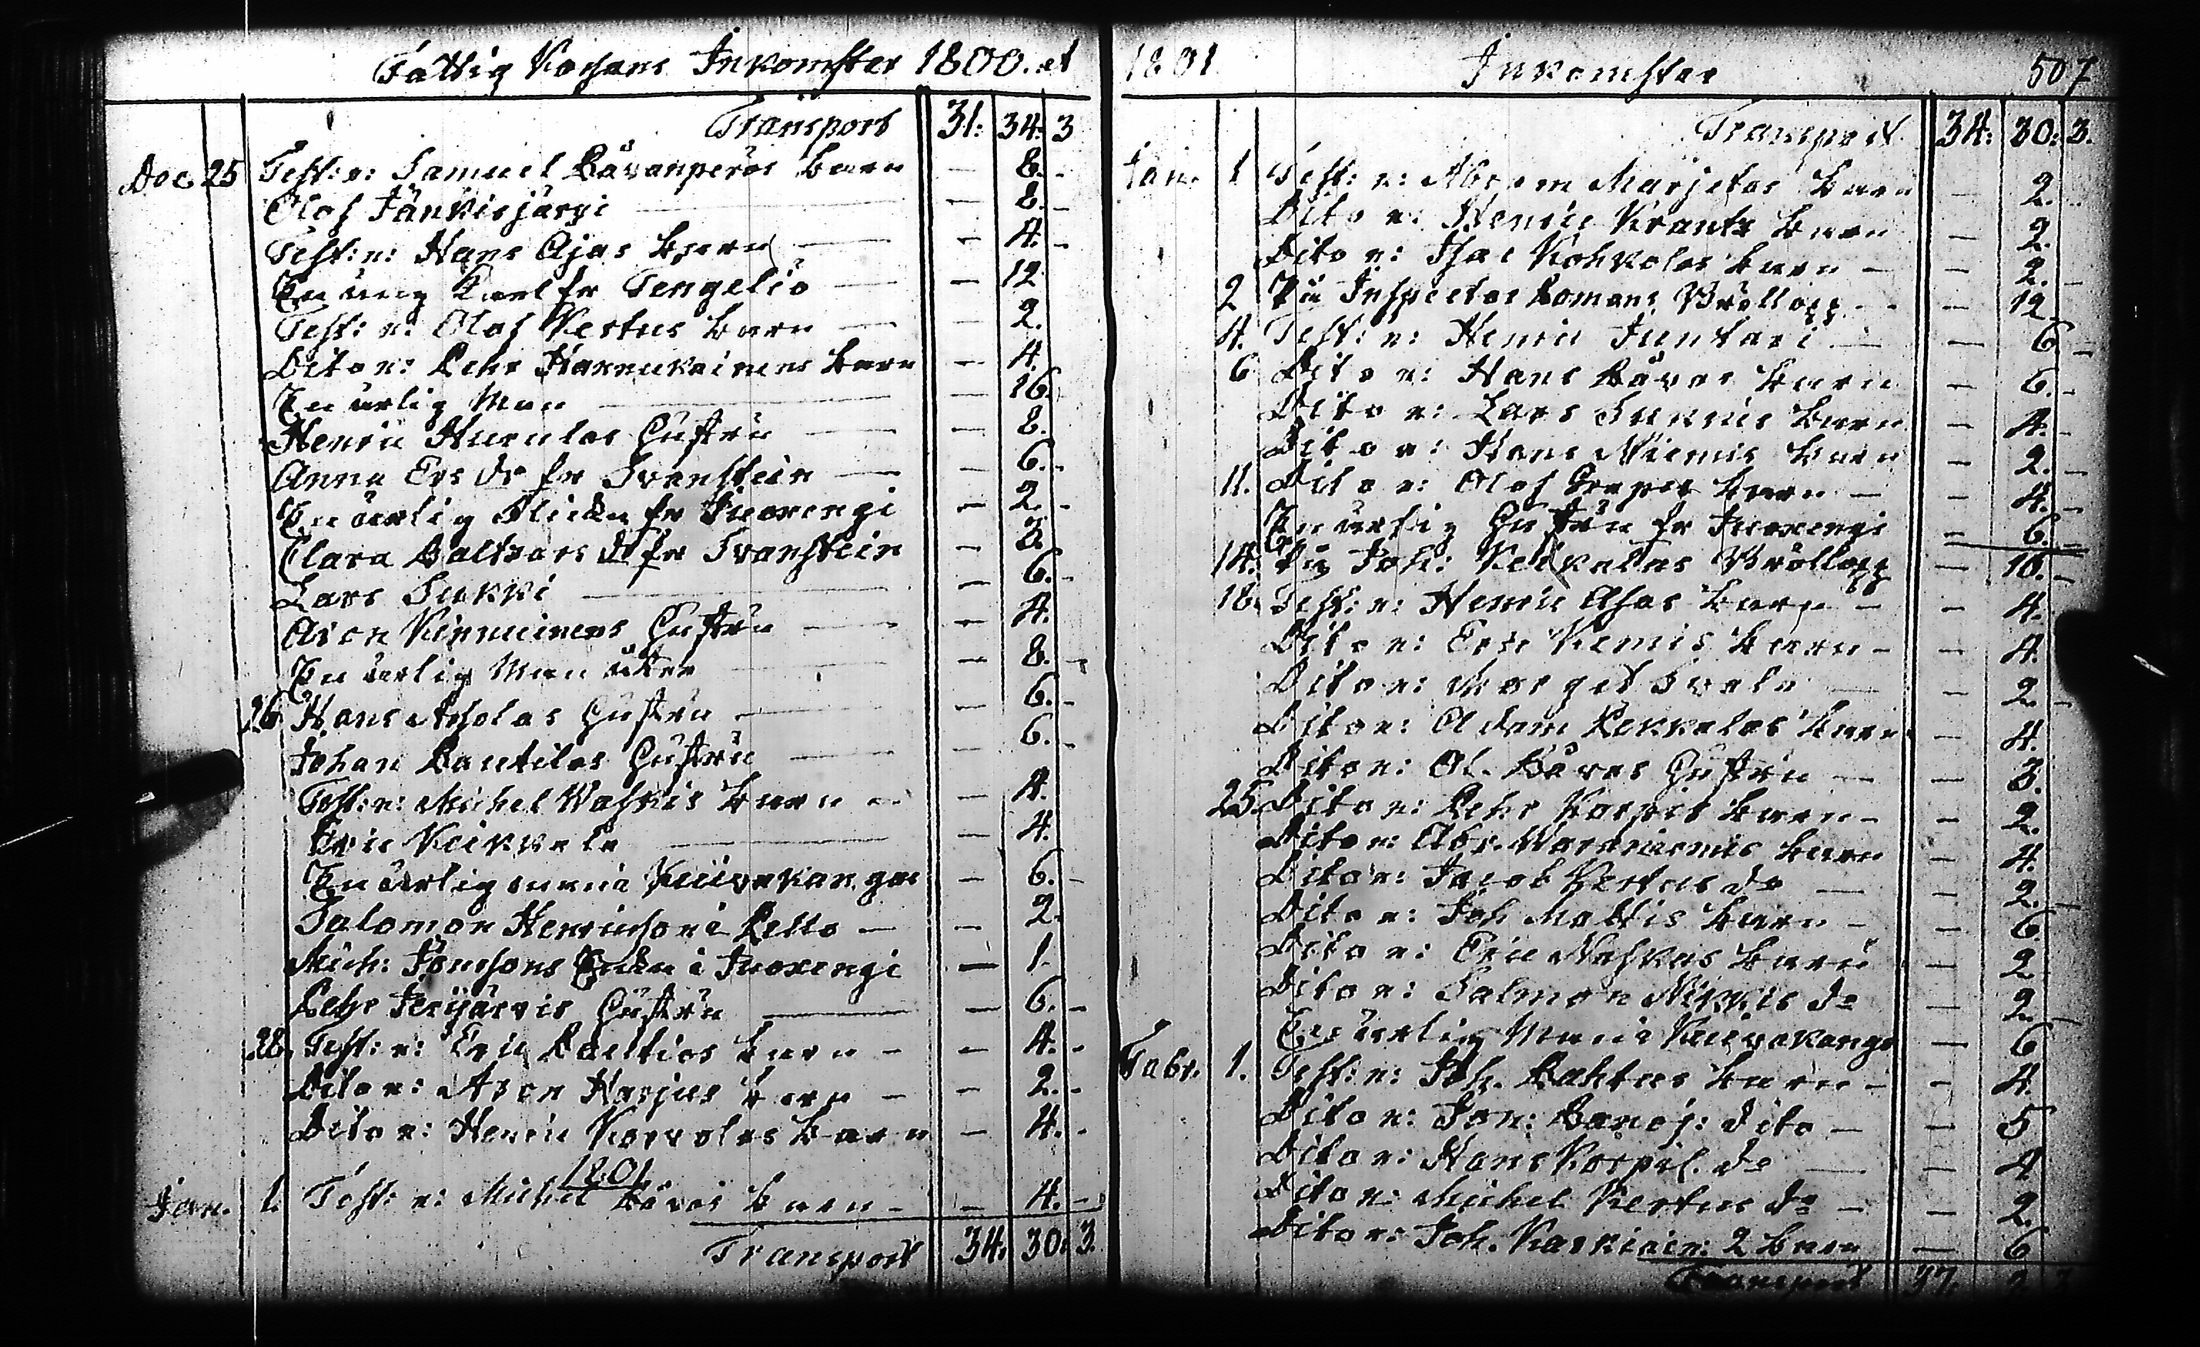 Fattig Kassans Inkomster 1800. et
Transport 31: 34: 3
Dec 25 Test: v: Samuel Båvanperäs barn — 8. -
Olof Jänkisjärfvi — 8. -
Test: v: Hans Ajas barn — 4. -
En ung Karl fr Tengeliö — 12
Test: v: Olof Kertus barn — 2.
Dito v: Pehr Hannukainens barn — 4.
En ärlig Man — 16.
Henric Hurulas Hustru — 8.
Anna Ers dr fr Svanstein — 6. -
En ärlig Flicka fr Juoxengi — 2. -
Clara Baltzars dr fr Svanstein — 3.
Lars Sukki — 6. -
Aron Kinnuinens Hustru — 4.
En ärlig Man åter — 8. -
26 Hans Aholas Hustru — 6. -
Johan Pantilas Hustru — 6. -
Test: v: Michel Waskis barn — 4.
Eric Keikkala — 4.
En ärlig man i Kuivakangas — 6. -
Salomon Henricson i Pello — 2.
Mich: Jönssons Enka i Juoxengi — 1.
Pehr Jerijärvis Hustru — 6. -
28. Test: v: Eric Poeltios barn — 4. -
Dito v: Aron Harjus barn — 2. -
Dito v: Henric Korvolas barn — 4. -
1801
Jan. 1. Test: v: Michel Båvas barn — 4. -
Transport 34. 30. 3.
1801 Inkomster 507
Transport 34: 30: 3.
Jan. 1 Test: v: Abram Marjetas barn — 2. -
Dito v: Henric Krantz barn — 2.
Dito v: Isac Kohkolas barn — 2. -
2 På Inspector Bomans Bröllopp — 12
4. Test: v: Henric Juntari — 6 -
6 Dito v: Hans Båvas barn — 6. -
Dito v: Lars Junnus barn — 4. -
Dito v: Hans Niemis barn — 2. -
11. Dito v: Olof Grapes barn — 4. -
En ärlig Hustru fr Juoxengi — 6. -
14. På Joh: Keikalas Bröllopp — 10. -
18. Test: v: Henric Ahas barn — 4.
Dito v: Eric Kemis barn — 4.
Dito v: Marget Svala — 2 -
Dito v: Adam Pekkalas barn — 4.
Dito v: Ol. Båvas Hustru — 3.
25. Dito v: Pehr Korpis barn — 2.
Dito v: Abr. Waraniemis barn — 4.
Dito v: Jacob Kertus do — 2. -
Dito v: Joh Mattis barn — 6.
Dito v: Eric Naskas barn — 2
Dito v: Salmon Nikkis do — 2
En ärlig Man i Kuivakangas — 6
Febr. 1. Test: v: Joh. Lahtus barn — 4.
Dito v: Jon: Banoj: dito — 5
Dito v: Hans Korpil. do — 4
Dito v: Michel Kertus do — 2.
Dito v: Joh. Karkiain: 2 barn — 6
Transport 37. 2 3